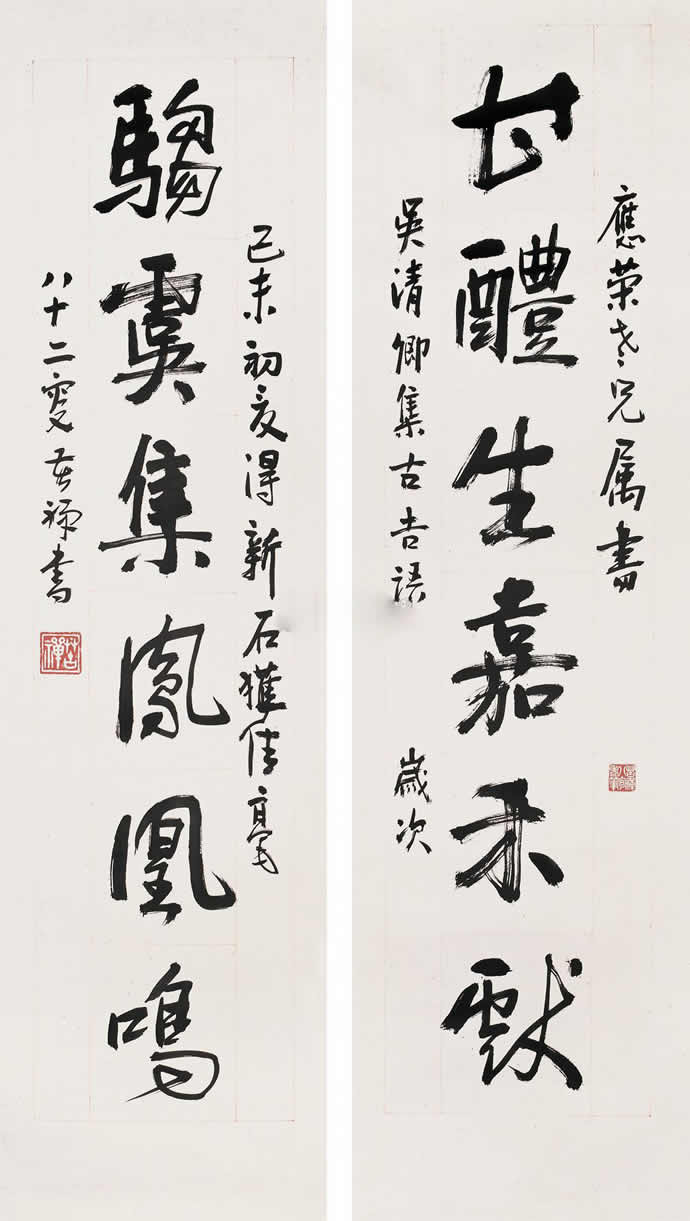 應荣老兄属書
甘醴生嘉禾獻
吳清卿集古吉語 歲次
己未初夏得新石獲佳毫
騶虞集鳳凰鳴
八十二叟苦禅書
苦禪